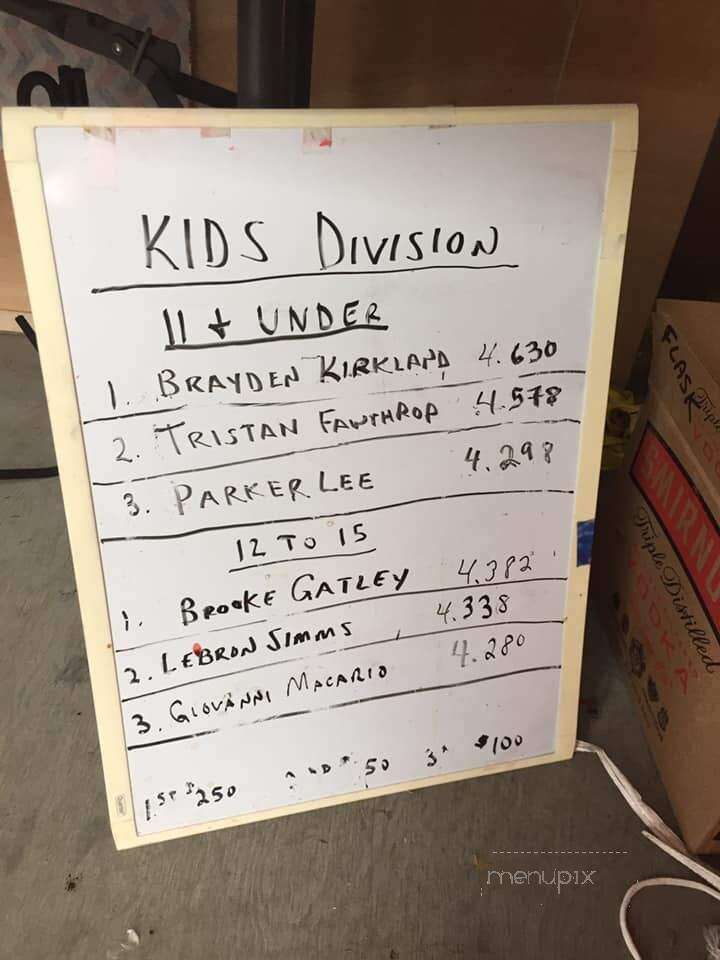 KIDS DIVISION
11 + UNDER
1. BRAYDEN KIRKLAND 4.630
2. TRISTAN FAWTHROP 4.578
3. PARKER LEE 4.298
12 TO 15
1. BROOKE GATLEY 4.382
2. LEBRON SIMMS 4.338
3. GIOVANNI MACARIO 4.280
1ST $250 50 $100
FLASK
Triple
SMIRN
Triple Distilled
VODKA
menupix